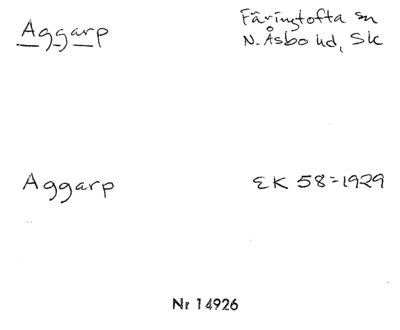 Aggarp
Färingtofta sn
N. Åsbo hd, Sk
Aggarp
EK 58=1929
Nr 14926